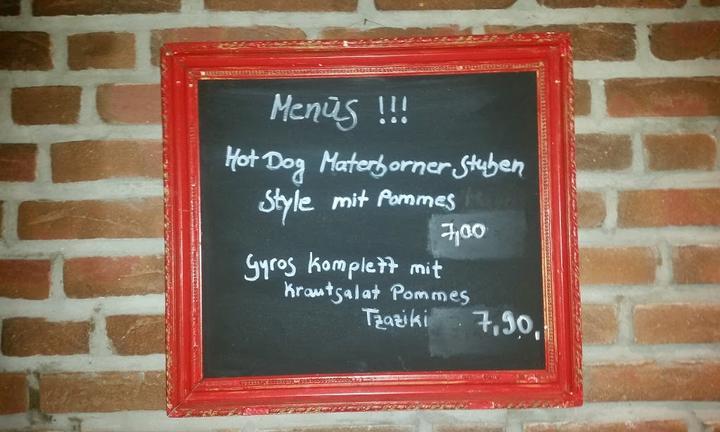 Menüs !!!
Hot Dog Materborner Stuben
Style mit Pommes
7,00
Gyros Komplett mit
Krautsalat Pommes
Tzaziki 7,90,